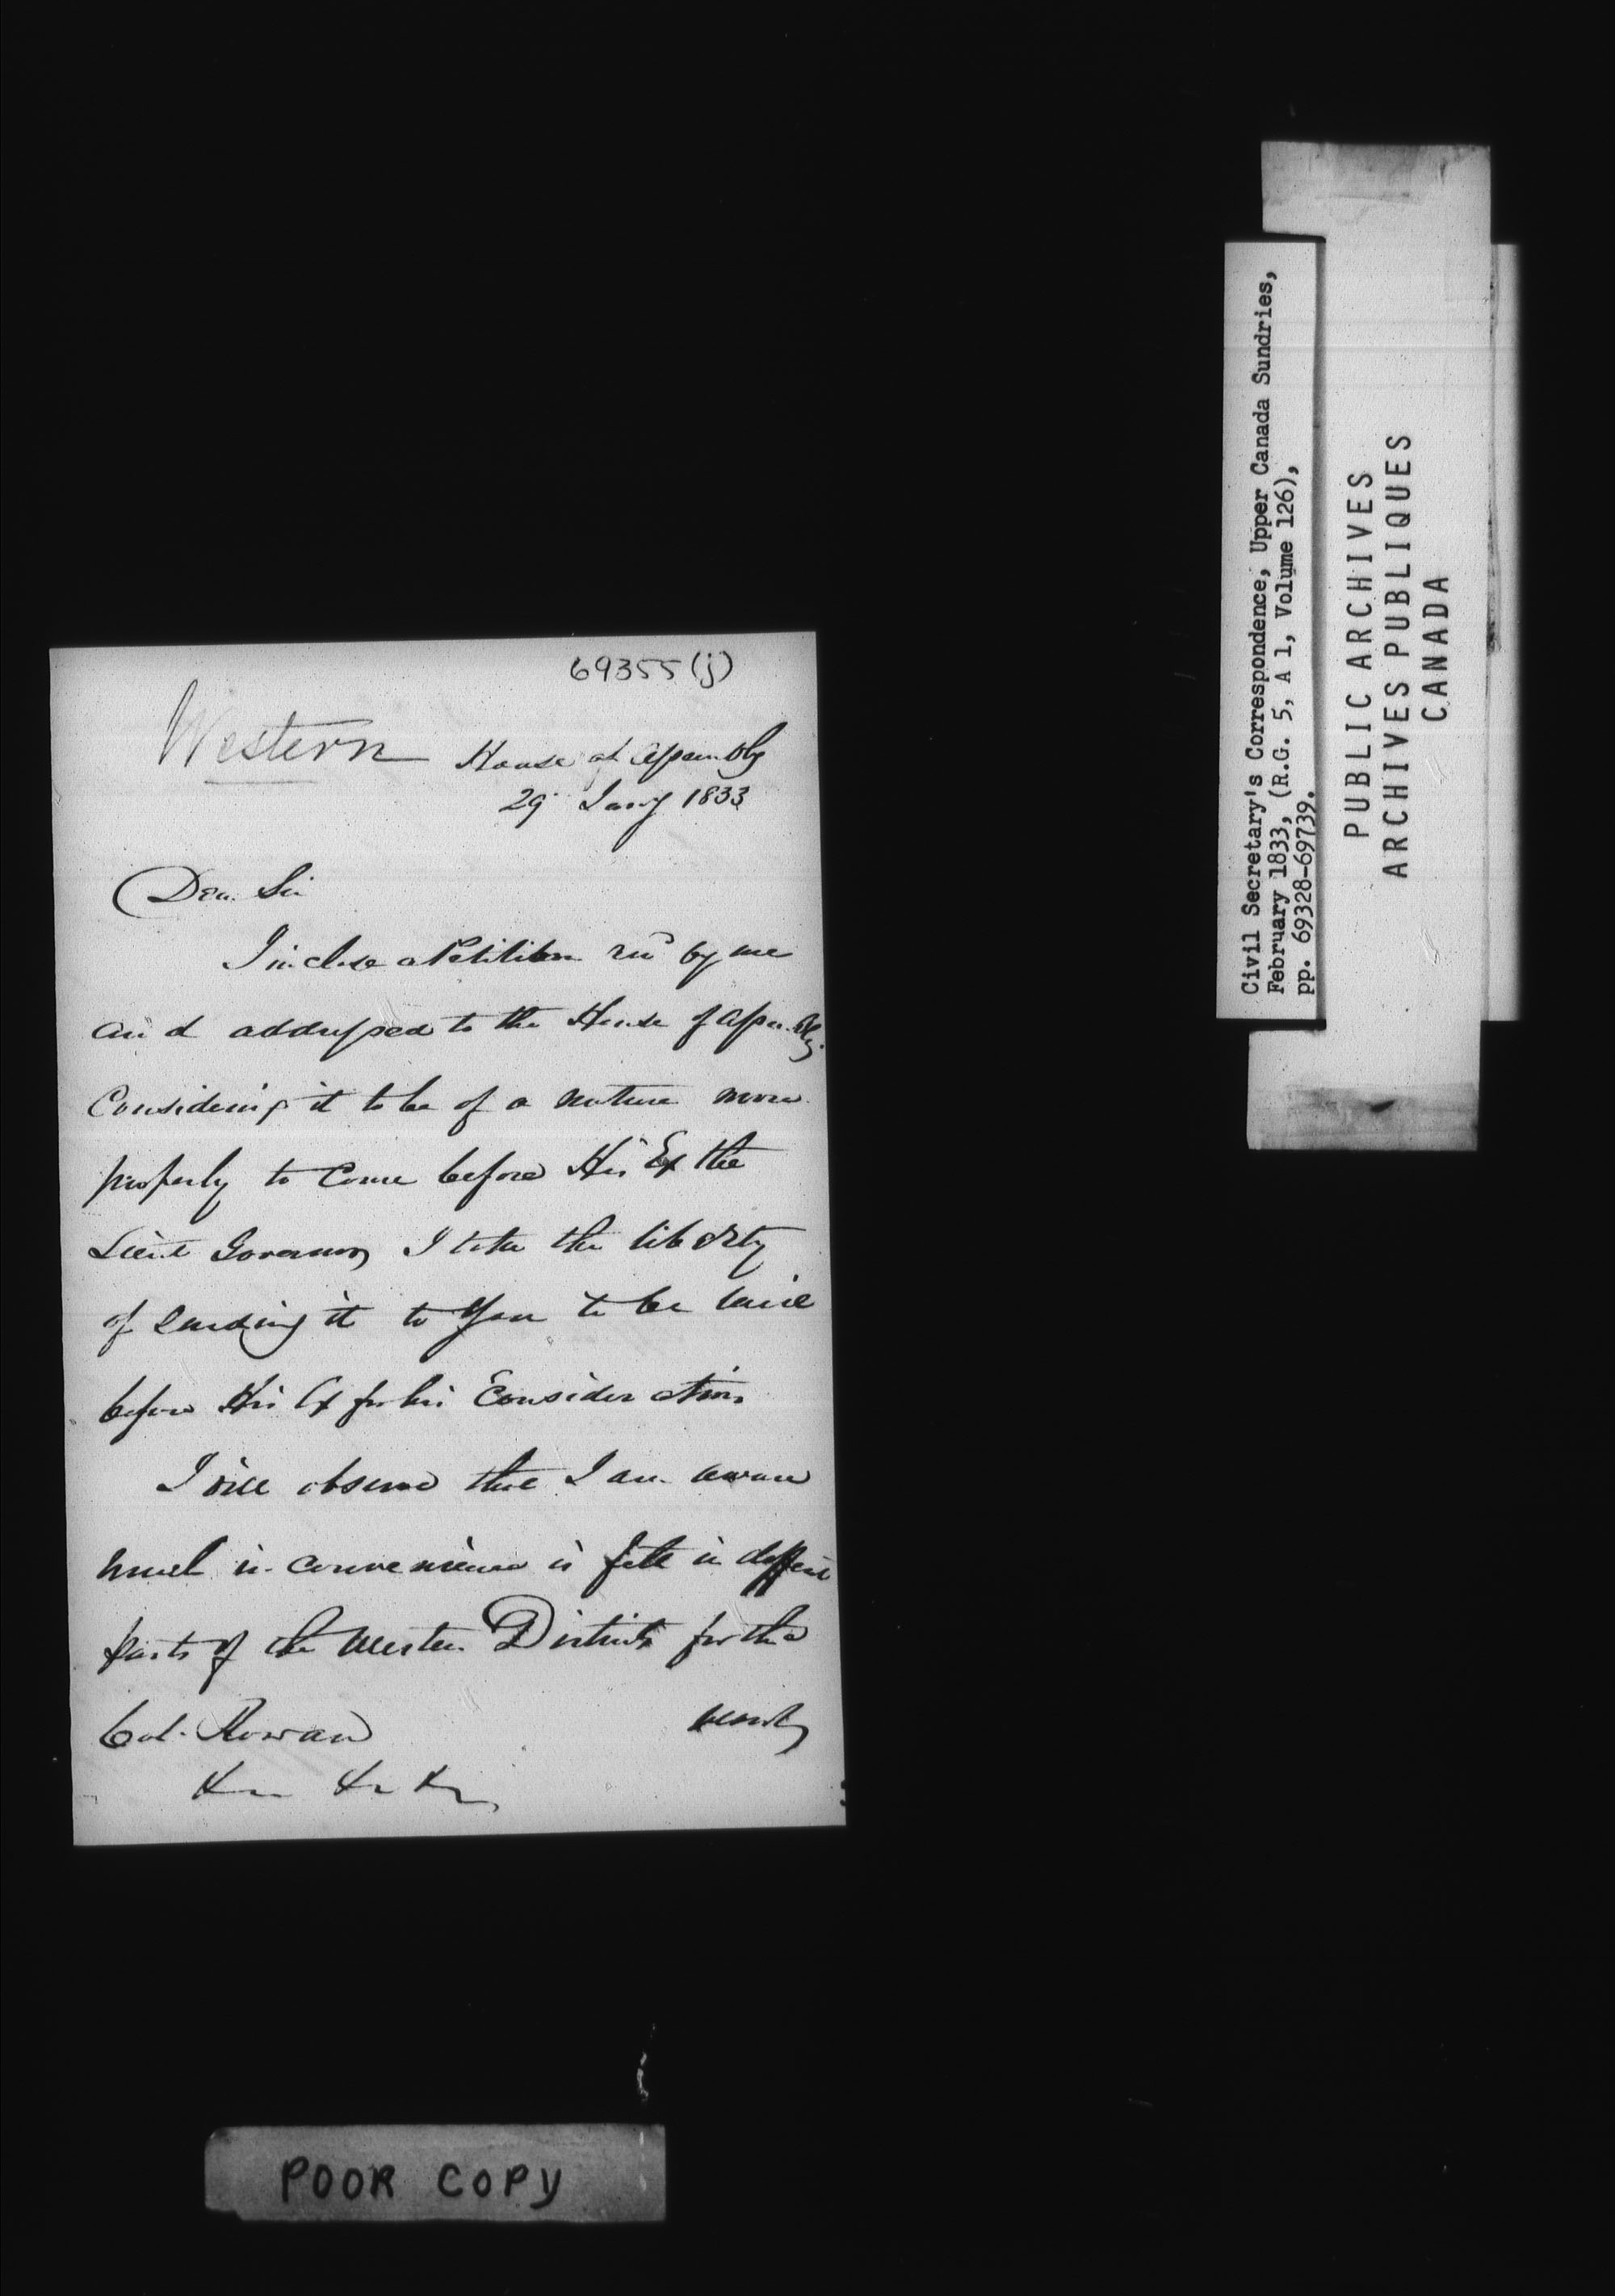 69355(j)
Western
House of Assembly
29 Jany 1833
Dear Sir
I inclose a Petition recd by me
and addressed to the House of Assembly
Considering it to be of a nature more
properly to Come before His Ex the
Lieut Governor, I take the liberty
of sending it to You to be laid
before His Ex for his Consideration
I will observe that I am aware
much inconvenience is felt in different
parts of the Western District for the
want of
Col. Rowan
&c &c &c
Civil Secretary's Correspondence, Upper Canada Sundries,
February 1833, (R.G. 5, A 1, Volume 126),
pp. 69328-69739.
PUBLIC ARCHIVES
ARCHIVES PUBLIQUES
CANADA
POOR COPY